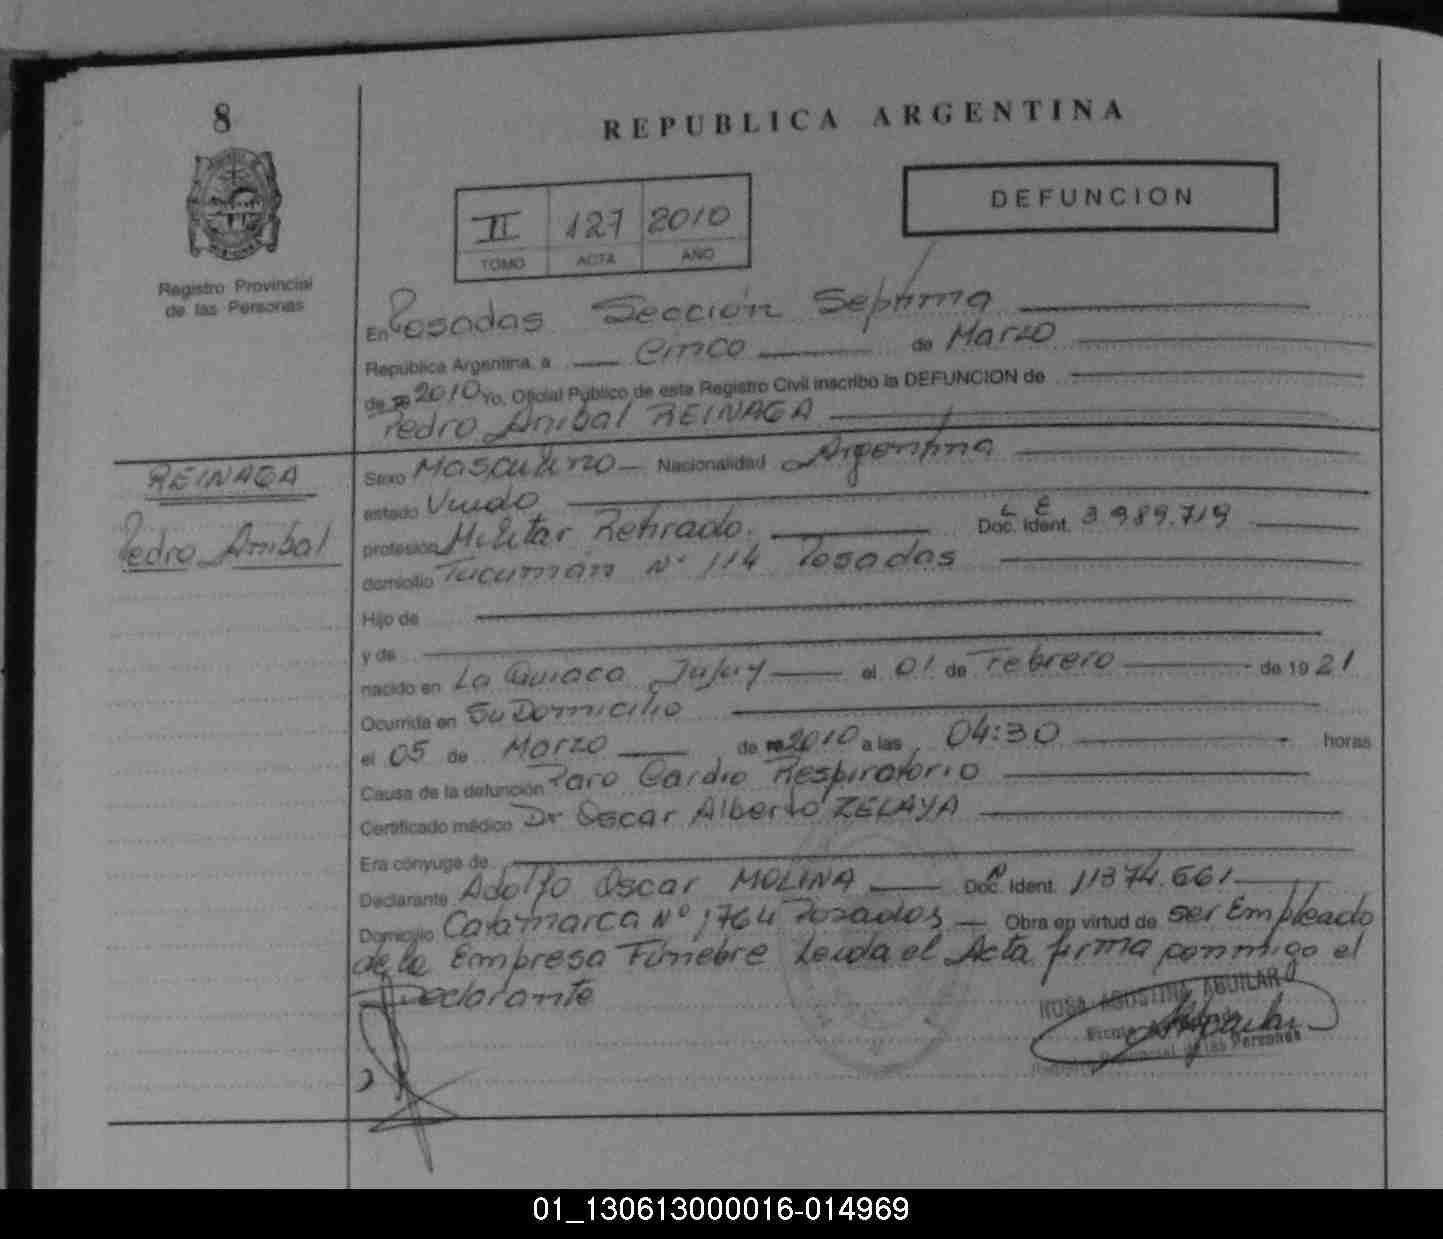 8
REPUBLICA ARGENTINA
DEFUNCION
II 127 2010
TOMO ACTA AÑO
Registro Provincial
de las Personas
En Posadas Sección Septima
República Argentina, a Cinco de Marzo
de 2010 Yo, Oficial Público de este Registro Civil inscribo la DEFUNCION de
Pedro Anibal REINAGA
REINAGA
Pedro Anibal
Sexo Masculino Nacionalidad Argentina
estado Viudo
profesión Militar Retirado. Doc. Ident. L E 3.989.719
domicilio Tucumán N° 114 Posadas
Hijo de
y de
nacido en La Quiaca Jujuy el 01 de Febrero de 19 21
Ocurrida en Su Domicilio
el 05 de Marzo de 2010 a las 04:30 horas
Causa de la defunción Paro Cardio Respiratorio
Certificado médico Dr Oscar Alberto ZELAYA
Era cónyuge de
Declarante Adolfo Oscar MOLINA Doc. Ident. 11374.661
Domicilio Catamarca N° 1764 Posadas Obra en virtud de ser Empleado
de la Empresa Fúnebre Leida el Acta firma conmigo el
Declarante
ROSA AGUSTINA AGUILAR
de las Personas
01_130613000016-014969